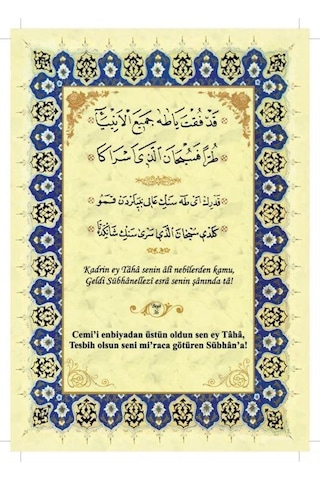 قَدْ فُقْتَ يَا طٰهٰ جَمِيعَ الْاَنْبِيَا
طُرًّا فَسُبْحَانَ الَّذِي اَسْرَاكَا
قدرك اى طه سنك عالى نبيلردن قمو
كلدى سبحان الذى اسرى سنك شانكده تا
Kadrin ey Tâhâ senin âlî nebilerden kamu,
Geldi Sübhânellezî esrâ senin şânında tâ!
Cemi'i enbiyadan üstün oldun sen ey Tâhâ,
Tesbih olsun seni mi'raca götüren Sübhân'a!